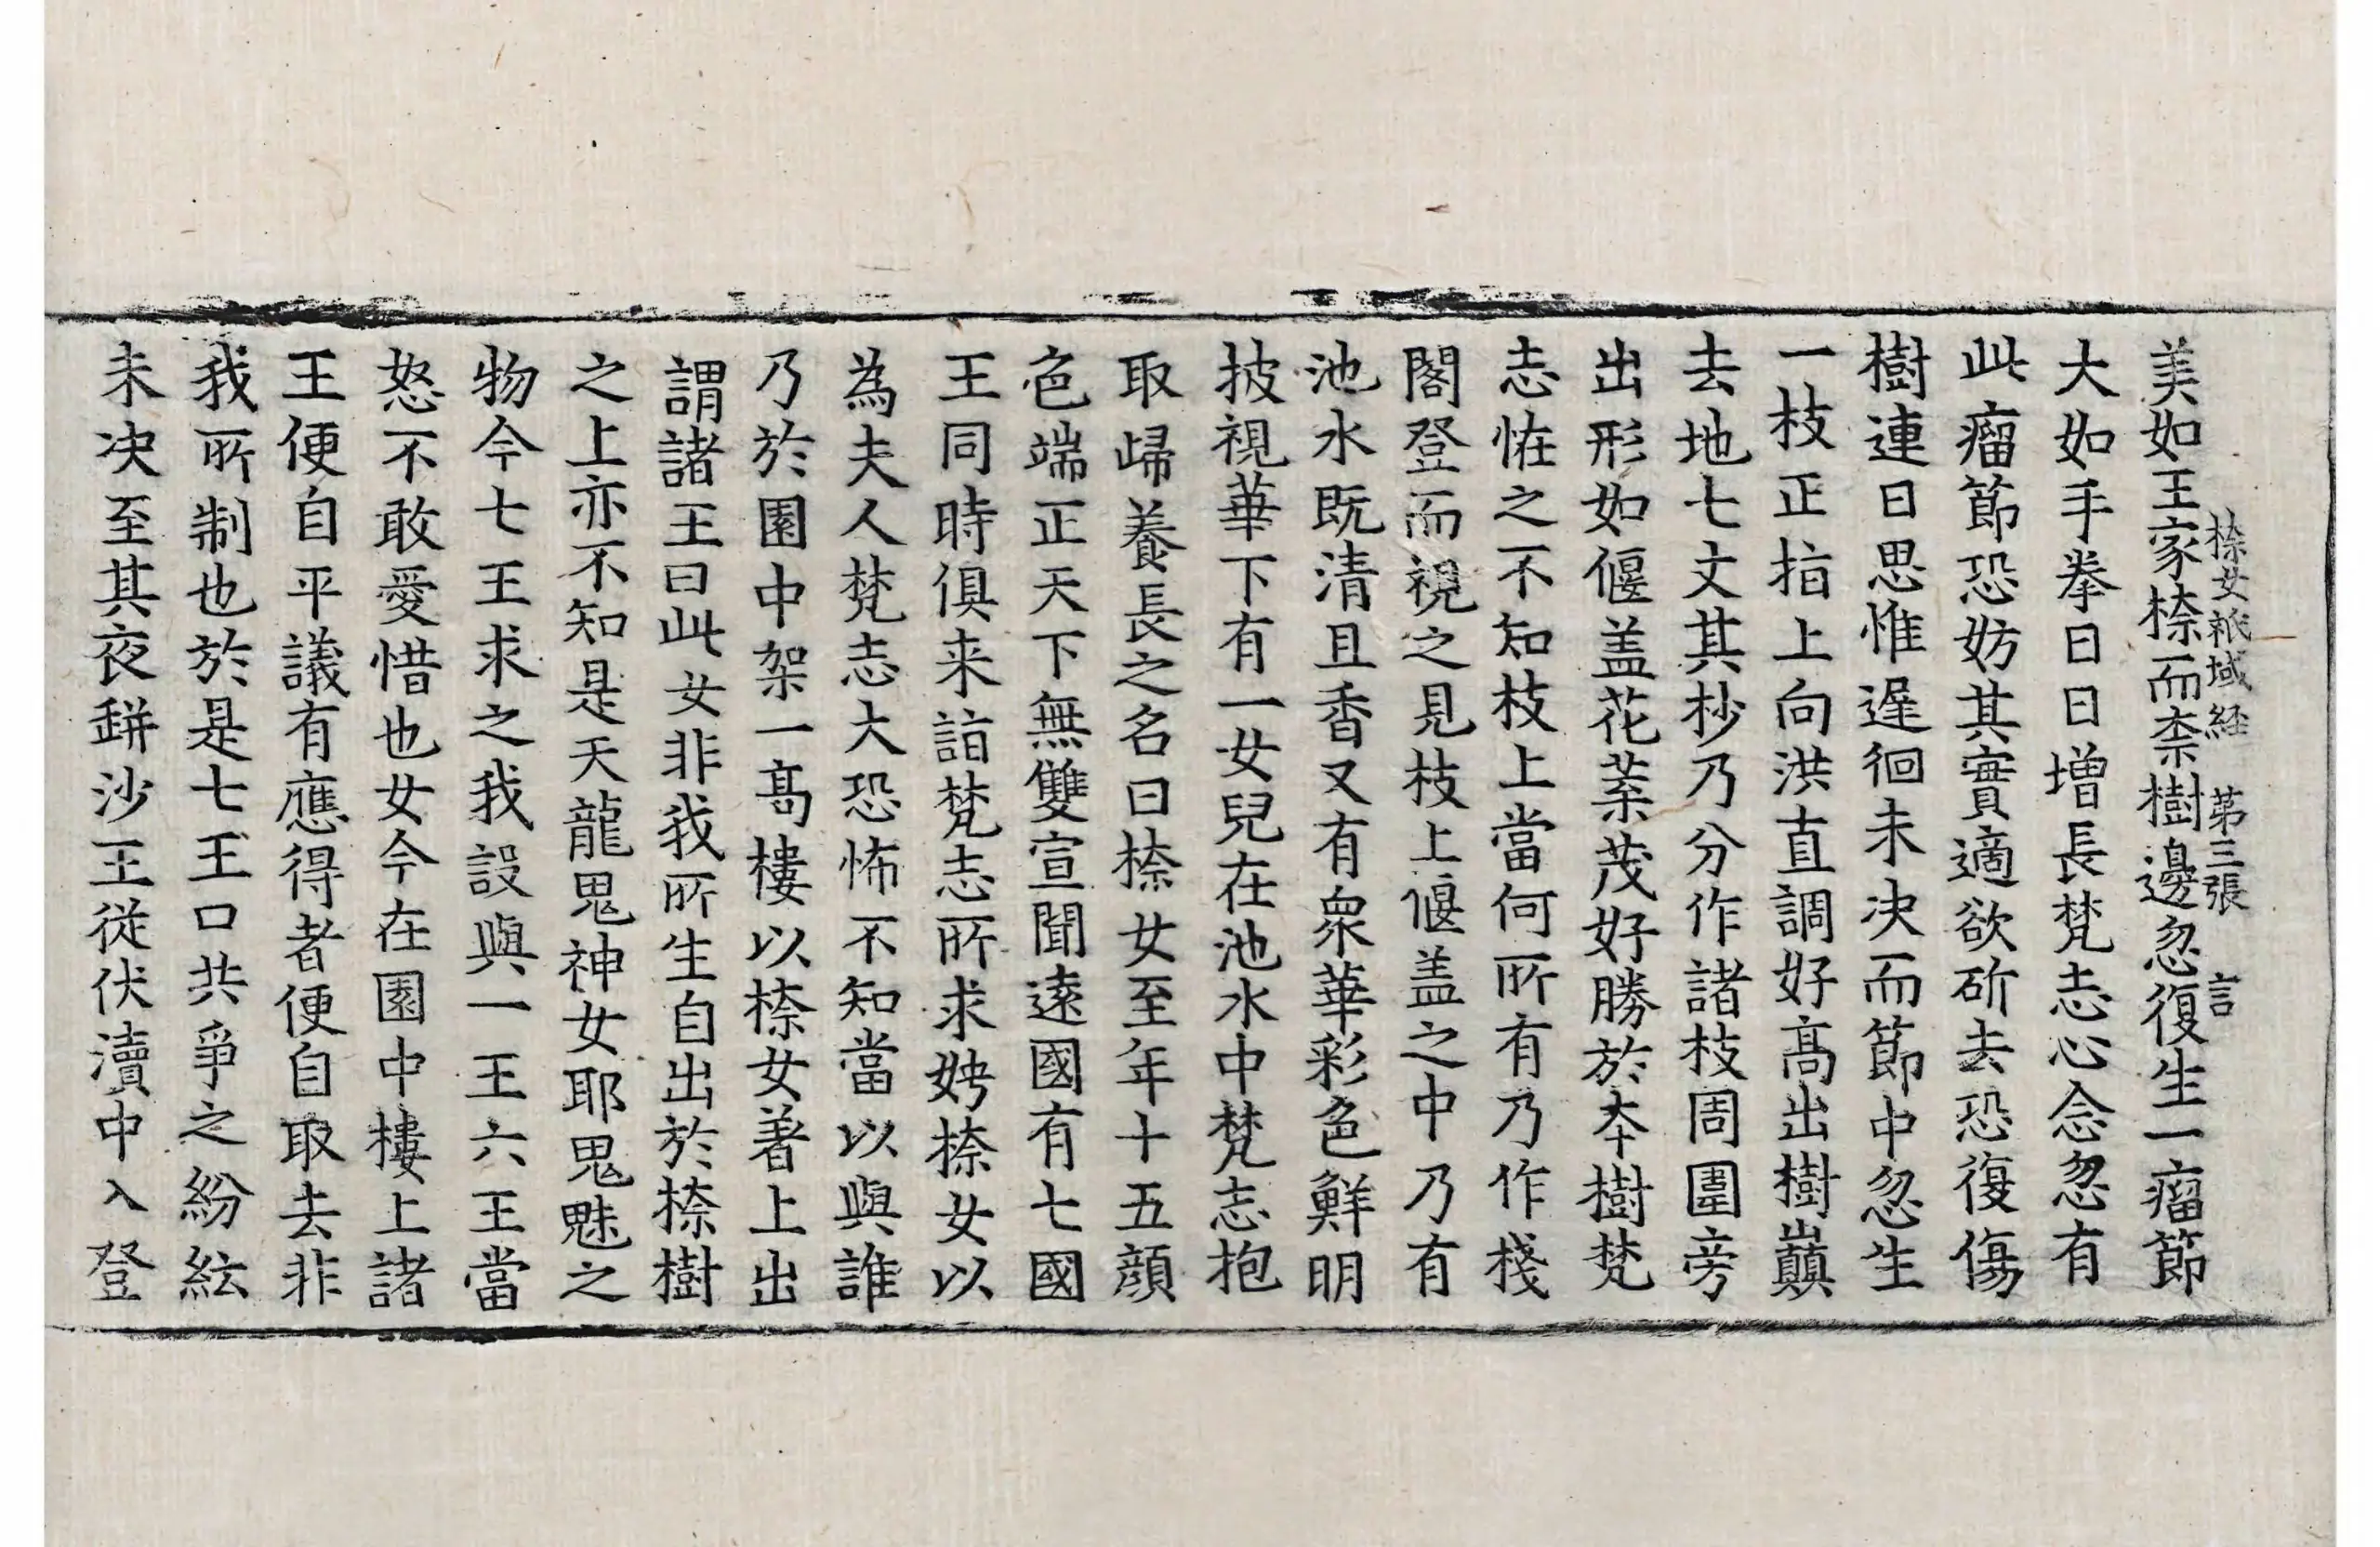 㮈女祇域経 第三張 言
美如王家㮈而柰樹邊忽復生一瘤節
大如手拳日日增長梵志心念忽有
此瘤節恐妨其實適欲斫去恐復傷
樹連日思惟遲徊未决而節中忽生
一枝正指上向洪直調好髙出樹巔
去地七丈其杪乃分作諸枝周圍旁
出形如偃盖花葉茂好勝於夲樹梵
志恠之不知枝上當何所有乃作棧
閣登而視之見枝上偃盖之中乃有
池水既清且香又有衆華彩色鮮明
披視華下有一女兒在池水中梵志抱
取歸養長之名曰㮈女至年十五顔
色端正天下無雙宣聞遠國有七國
王同時俱来詣梵志所求娉㮈女以
為夫人梵志大恐怖不知當以與誰
乃於園中架一髙樓以㮈女著上出
謂諸王曰此女非我所生自出於㮈樹
之上亦不知是天龍鬼神女耶鬼魅之
物今七王求之我設與一王六王當
怒不敢愛惜也女今在園中樓上諸
王便自平議有應得者便自取去非
我所制也於是七王口共爭之紛紜
未决至其夜蓱沙王從伏瀆中入登